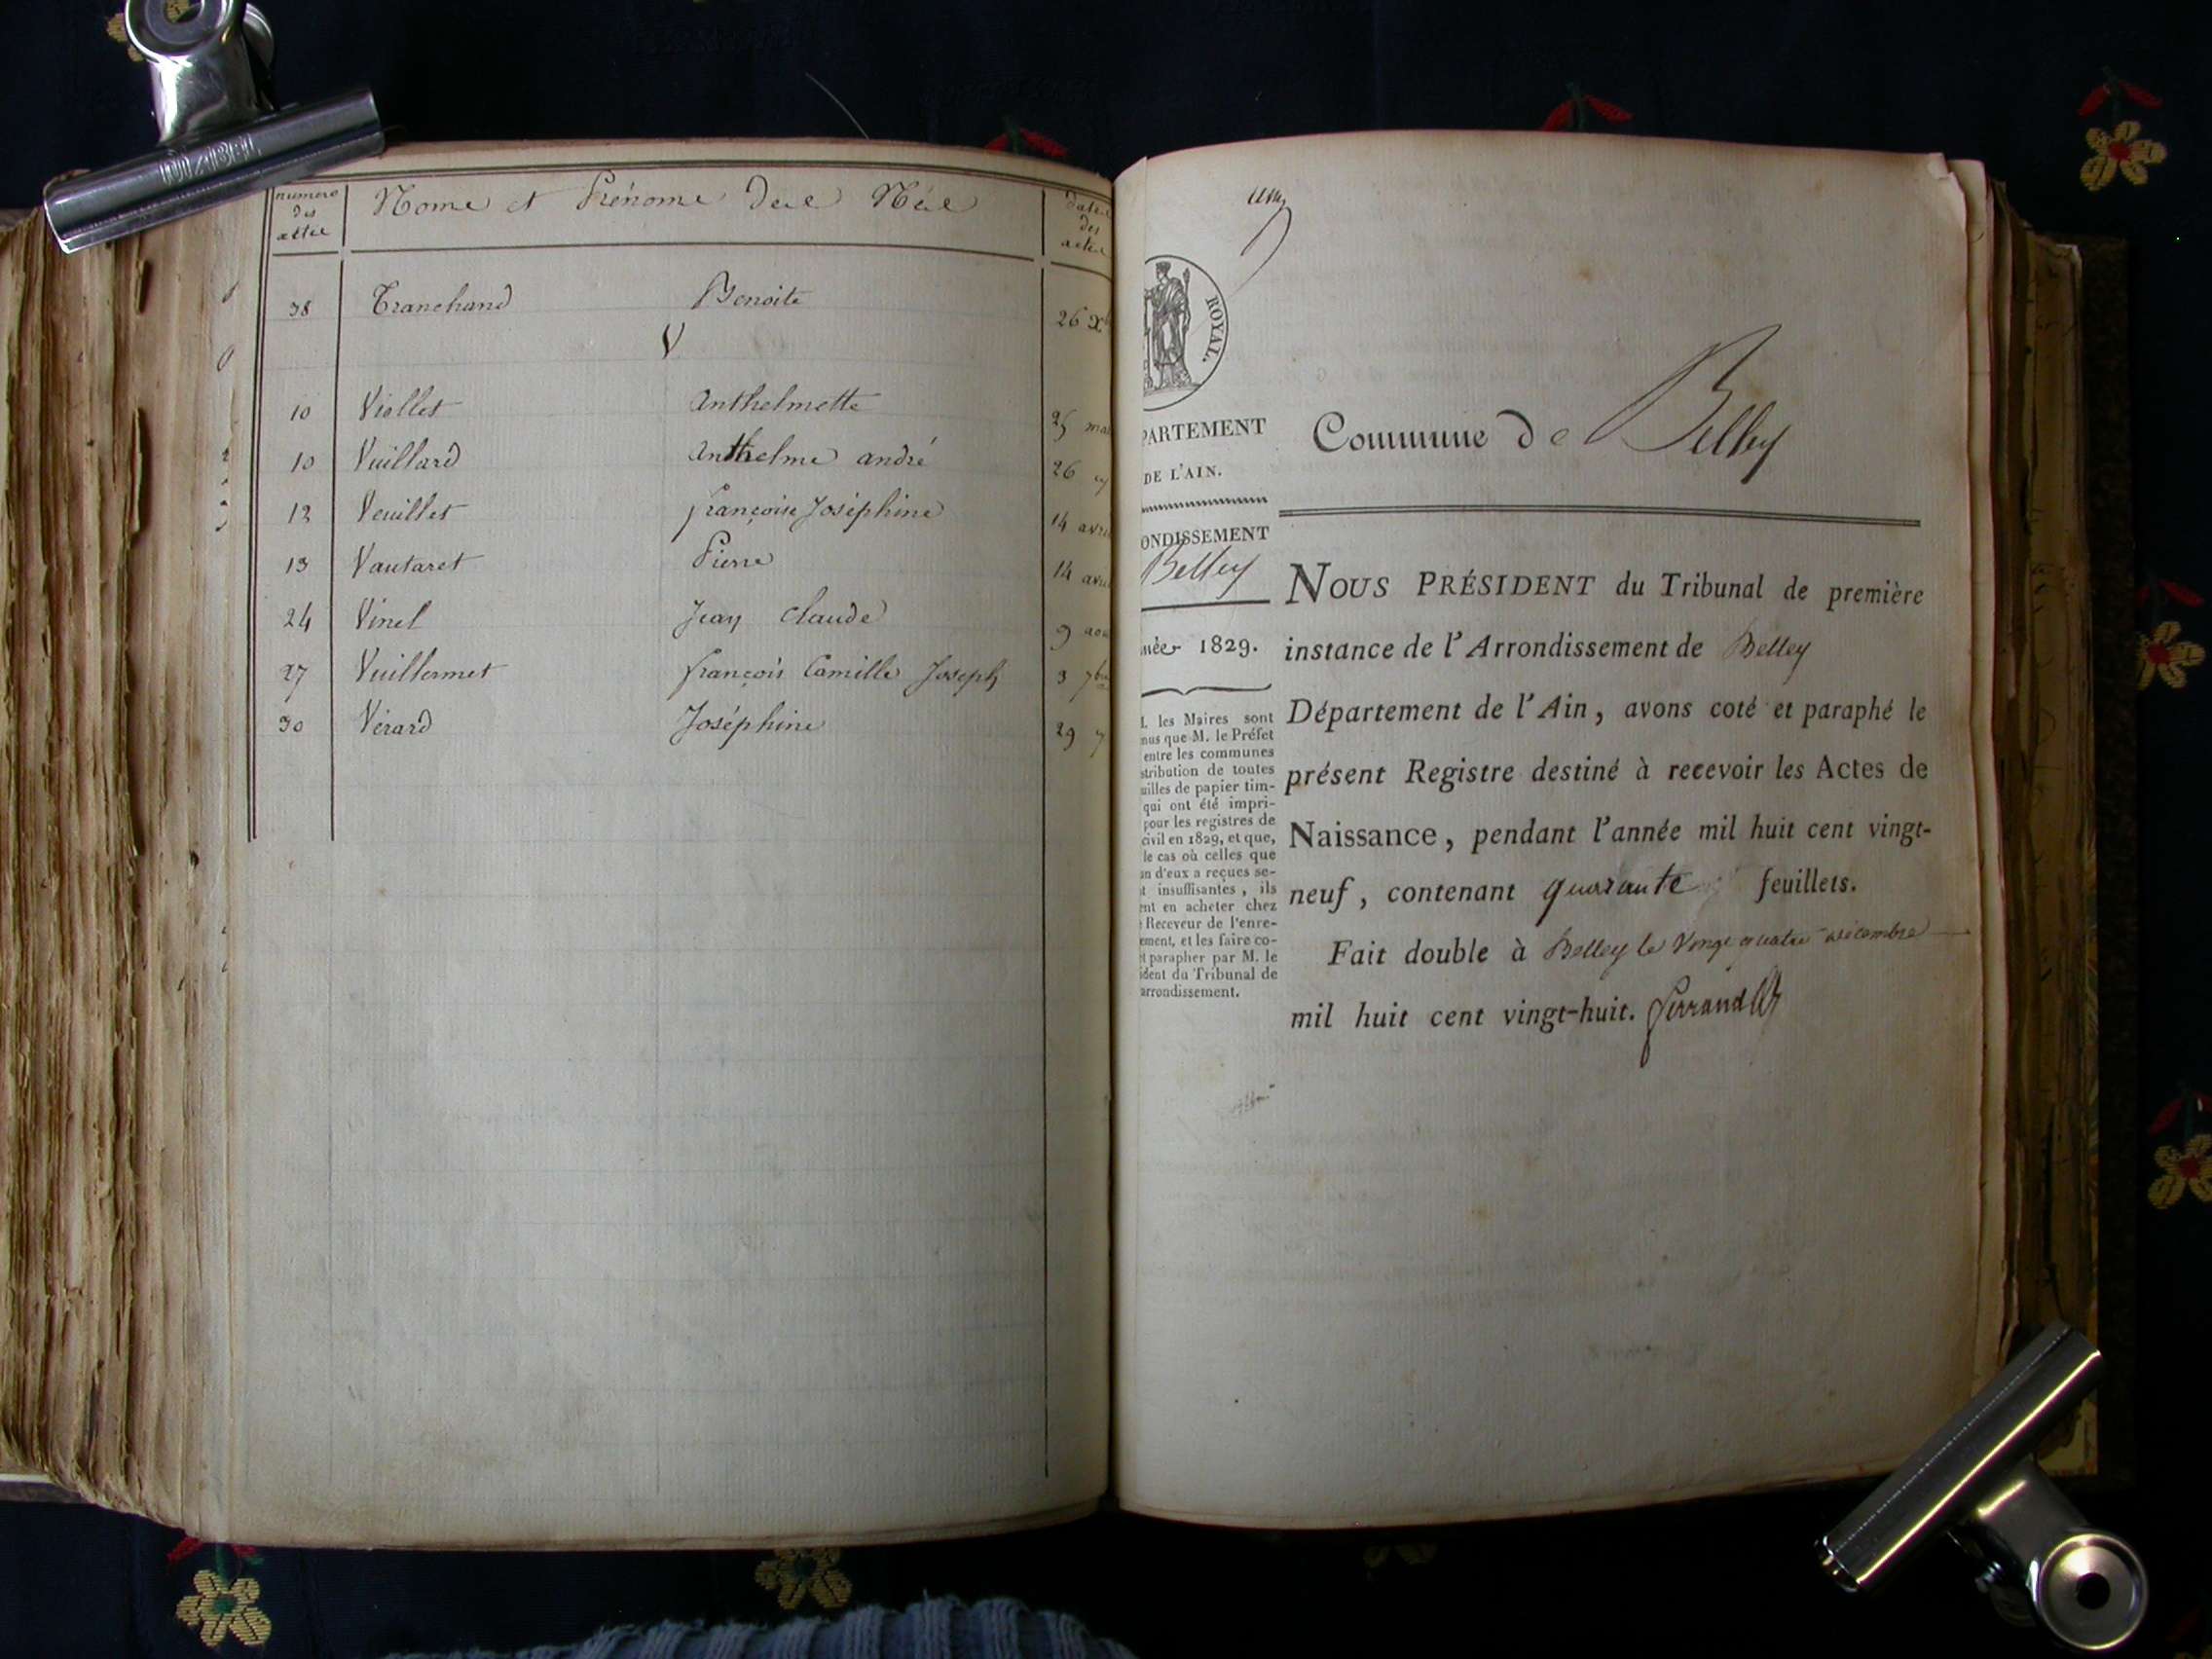 numero
des
actes
Noms et Prénoms des Nés
dates
des
actes
38 Tranchand Benoite 26 X
V
10 Viollet Anthelmette 25 mai
10 Vuillard Anthelme andré 26
12 Veuillet françoise Joséphine 14 avri
13 Vautaret Pierre 14 avri
24 Vinel Jean Claude 9 aou
27 Vuillermet françois Camille Joseph 3 7bre
30 Vérard Joséphine 29 7
un
ROYAL.
PARTEMENT
DE L'AIN.
ONDISSEMENT
Belley
née 1829.
M. les Maires sont
nus que M. le Préfet
entre les communes
stribution de toutes
uilles de papier tim-
qui ont été impri-
pour les registres de
civil en 1829, et que,
le cas où celles que
un d'eux a reçues se-
t insuffisantes, ils
ent en acheter chez
Receveur de l'enre-
ement, et les faire co-
t parapher par M. le
ident du Tribunal de
arrondissement.
Commune de Belley
NOUS PRÉSIDENT du Tribunal de première
instance de l'Arrondissement de Belley
Département de l'Ain, avons coté et paraphé le
présent Registre destiné à recevoir les Actes de
Naissance, pendant l'année mil huit cent vingt-
neuf, contenant quarante feuillets.
Fait double à Belley le Vingt quatre décembre
mil huit cent vingt-huit. ferrand
DIZABEL